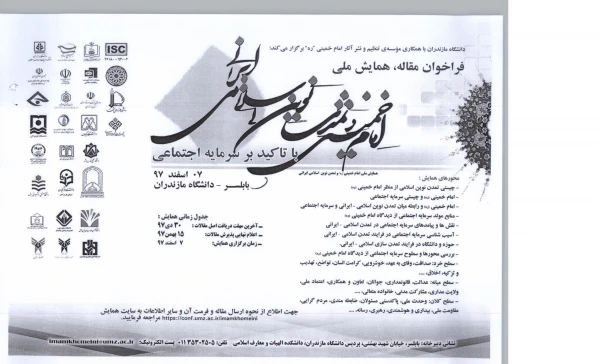 دانشگاه مازندران با همکاری مؤسسه‌ی تنظیم و نشر آثار امام خمینی "ره" برگزار می‌کند:
فراخوان مقاله، همایش ملی
امام خمینی و تمدن نوین اسلامی ایرانی
با تاکید بر سرمایه اجتماعی
۰۷ اسفند ۹۷
بابلسر - دانشگاه مازندران
ISC
جدول زمانی همایش :
آخرین مهلت دریافت اصل مقالات : ۳۰ دی ۹۷
اعلام نهایی پذیرش مقالات : ۱۵ بهمن ۹۷
زمان برگزاری همایش : ۷ اسفند ۹۷
محورهای همایش :
- چیستی تمدن نوین اسلامی از منظر امام خمینی
- امام خمینی و چیستی سرمایه اجتماعی
- امام خمینی و رابطه میان تمدن نوین اسلامی - ایرانی و سرمایه اجتماعی
- منابع مولد سرمایه اجتماعی از دیدگاه امام خمینی
- نقش ها و پیامدهای سرمایه اجتماعی در تمدن اسلامی - ایرانی
- آسیب شناسی سرمایه اجتماعی در فرایند تمدن اسلامی - ایرانی
- حوزه و دانشگاه در فرایند تمدن سازی اسلامی - ایرانی
- بررسی محورها و سطوح سرمایه اجتماعی از دیدگاه امام خمینی
- سطح خرد: صداقت، وفای به عهد، خوشرویی، کرامت انسان، تواضع، تهذیب
و تزکیه، اخلاق، ....
- سطح میانه: عدالت، قانونمداری، جوانان، تعاون و همکاری، اعتماد ملی،
ولایت مداری، مشارکت مدنی، خانواده متعالی، ....
- سطح کلان: وحدت ملی، پاکدستی مسئولان، ضابطه مندی، مردم گرایی،
مقاومت ملی، بیداری و هوشمندی، رهبری، رسانه، ....
جهت اطلاع از نحوه ارسال مقاله و فرمت آن و سایر اطلاعات به سایت همایش
https://conf.umz.ac.ir/imamkhomeini مراجعه فرمایید.
نشانی دبیرخانه: بابلسر، خیابان شهید بهشتی، پردیس دانشگاه مازندران، دانشکده الهیات و معارف اسلامی تلفن: ۰۱۱۳۵۳۰۲۵۰۵ پست الکترونیک: imamkhomeini@umz.ac.ir